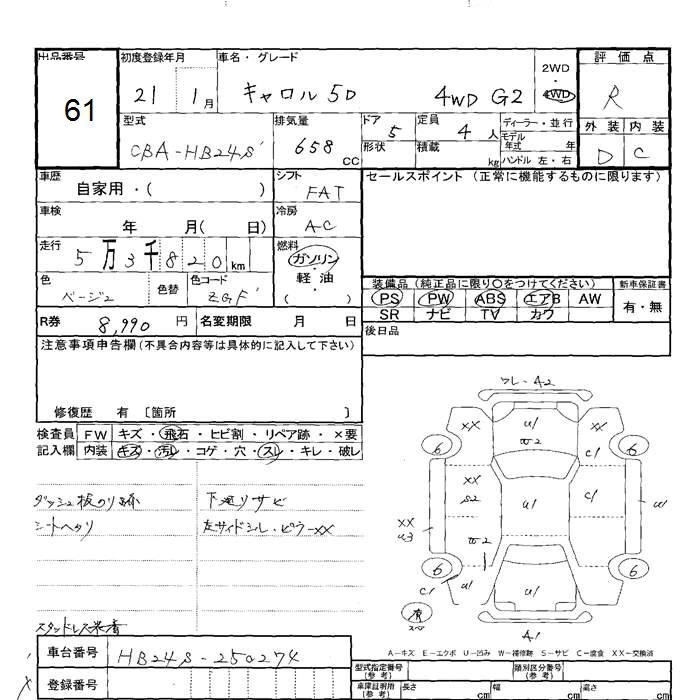 出品番号 初度登録年月 車名・グレード 2WD・4WD 評価点
61 21 1月 キャロル 5D 4WD G2 R
型式 排気量 ドア 定員 ディーラー・並行 外装 内装
CBA-HB24S 658 CC 5 4人 モデル年式 年 D C
形状 積載 kg ハンドル 左・右
車歴 シフト セールスポイント (正常に機能するものに限ります)
自家用・( ) FAT
車検 冷房
年 月( 日) A-C
走行 燃料
5万3千820km ガソリン・軽油・( )
色 色替 色コード 装備品 (純正品に限り○をつけてください) 新車保証書
ベージュ ZGF PS PW ABS エアB AW 有・無
SR ナビ TV カワ
R券 8,990円 名変期限 月 日 後日品
注意事項申告欄(不具合内容等は具体的に記入して下さい)
修復歴 有 〔箇所 〕
検査員 FW キズ・飛石・ヒビ割・リペア跡・×要
記入欄 内装 キズ・汚レ・コゲ・穴・スレ・キレ・破レ
ダッシュ板のり跡 下廻リサビ
シートヘタリ 左サイドシル・ピラーXX
スタッドレス装着
ワレ・A2
XX U1 XX
W2
6 6
C1
XX S2 U1 C1 U1
XX U3
W2
6 6
C1 U1 U1 U1
有 スペア
A1
A-キズ E-エクボ U-凹み W-補修跡 S-サビ C-腐食 XX-交換済
車台番号 HB24S-250274
登録番号
型式指定番号(参考) 類別区分番号(参考)
車庫証明用(参考) 長さ cm 幅 cm 高さ cm